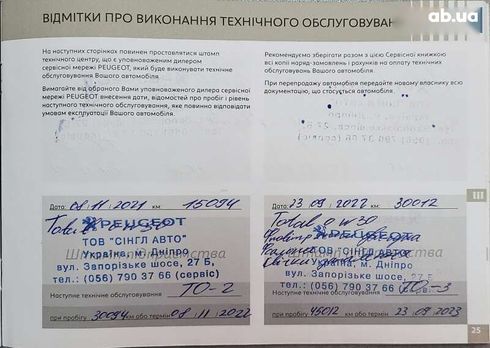 ab.ua
ВІДМІТКИ ПРО ВИКОНАННЯ ТЕХНІЧНОГО ОБСЛУГОВУВАН
На наступних сторінках повинен проставлятися штамп
технічного центру, що є уповноваженим дилером
сервісної мережі PEUGEOT, який буде виконувати технічне
обслуговування Вашого автомобіля.
Вимагайте від обраного Вами уповноваженого дилера сервісної
мережі PEUGEOT, внесення дати, відомостей про пробіг і рівень
наступного технічного обслуговування, яке повинно відповідати
умовам експлуатації Вашого автомобіля.
Рекомендуємо зберігати разом з цією Сервісною книжкою
всі копії наряд-замовлень і рахунків на оплату технічних
обслуговувань Вашого автомобіля.
При перепродажу автомобіля передайте новому власнику всю
документацію, що стосується автомобіля.
III
Дата: 08 11 2021 км: 15094
0W30
PEUGEOT
ТОВ "СІНГЛ АВТО"
Україна, м. Дніпро
вул. Запорізьке шосе, 27 Б,
тел.: (056) 790 37 66 (сервіс)
Наступне технічне обслуговування ТО-2
при пробігу 30094 км або термін 08 11 2022
Дата: 23 09 2022 км: 30012
0W30
PEUGEOT
ТОВ "СІНГЛ АВТО"
Україна, м. Дніпро
вул. Запорізьке шосе, 27 Б,
тел.: (056) 790 37 66
Наступне технічне обслуговування ТО-3
при пробігу 45012 км або термін 23 09 2023
25